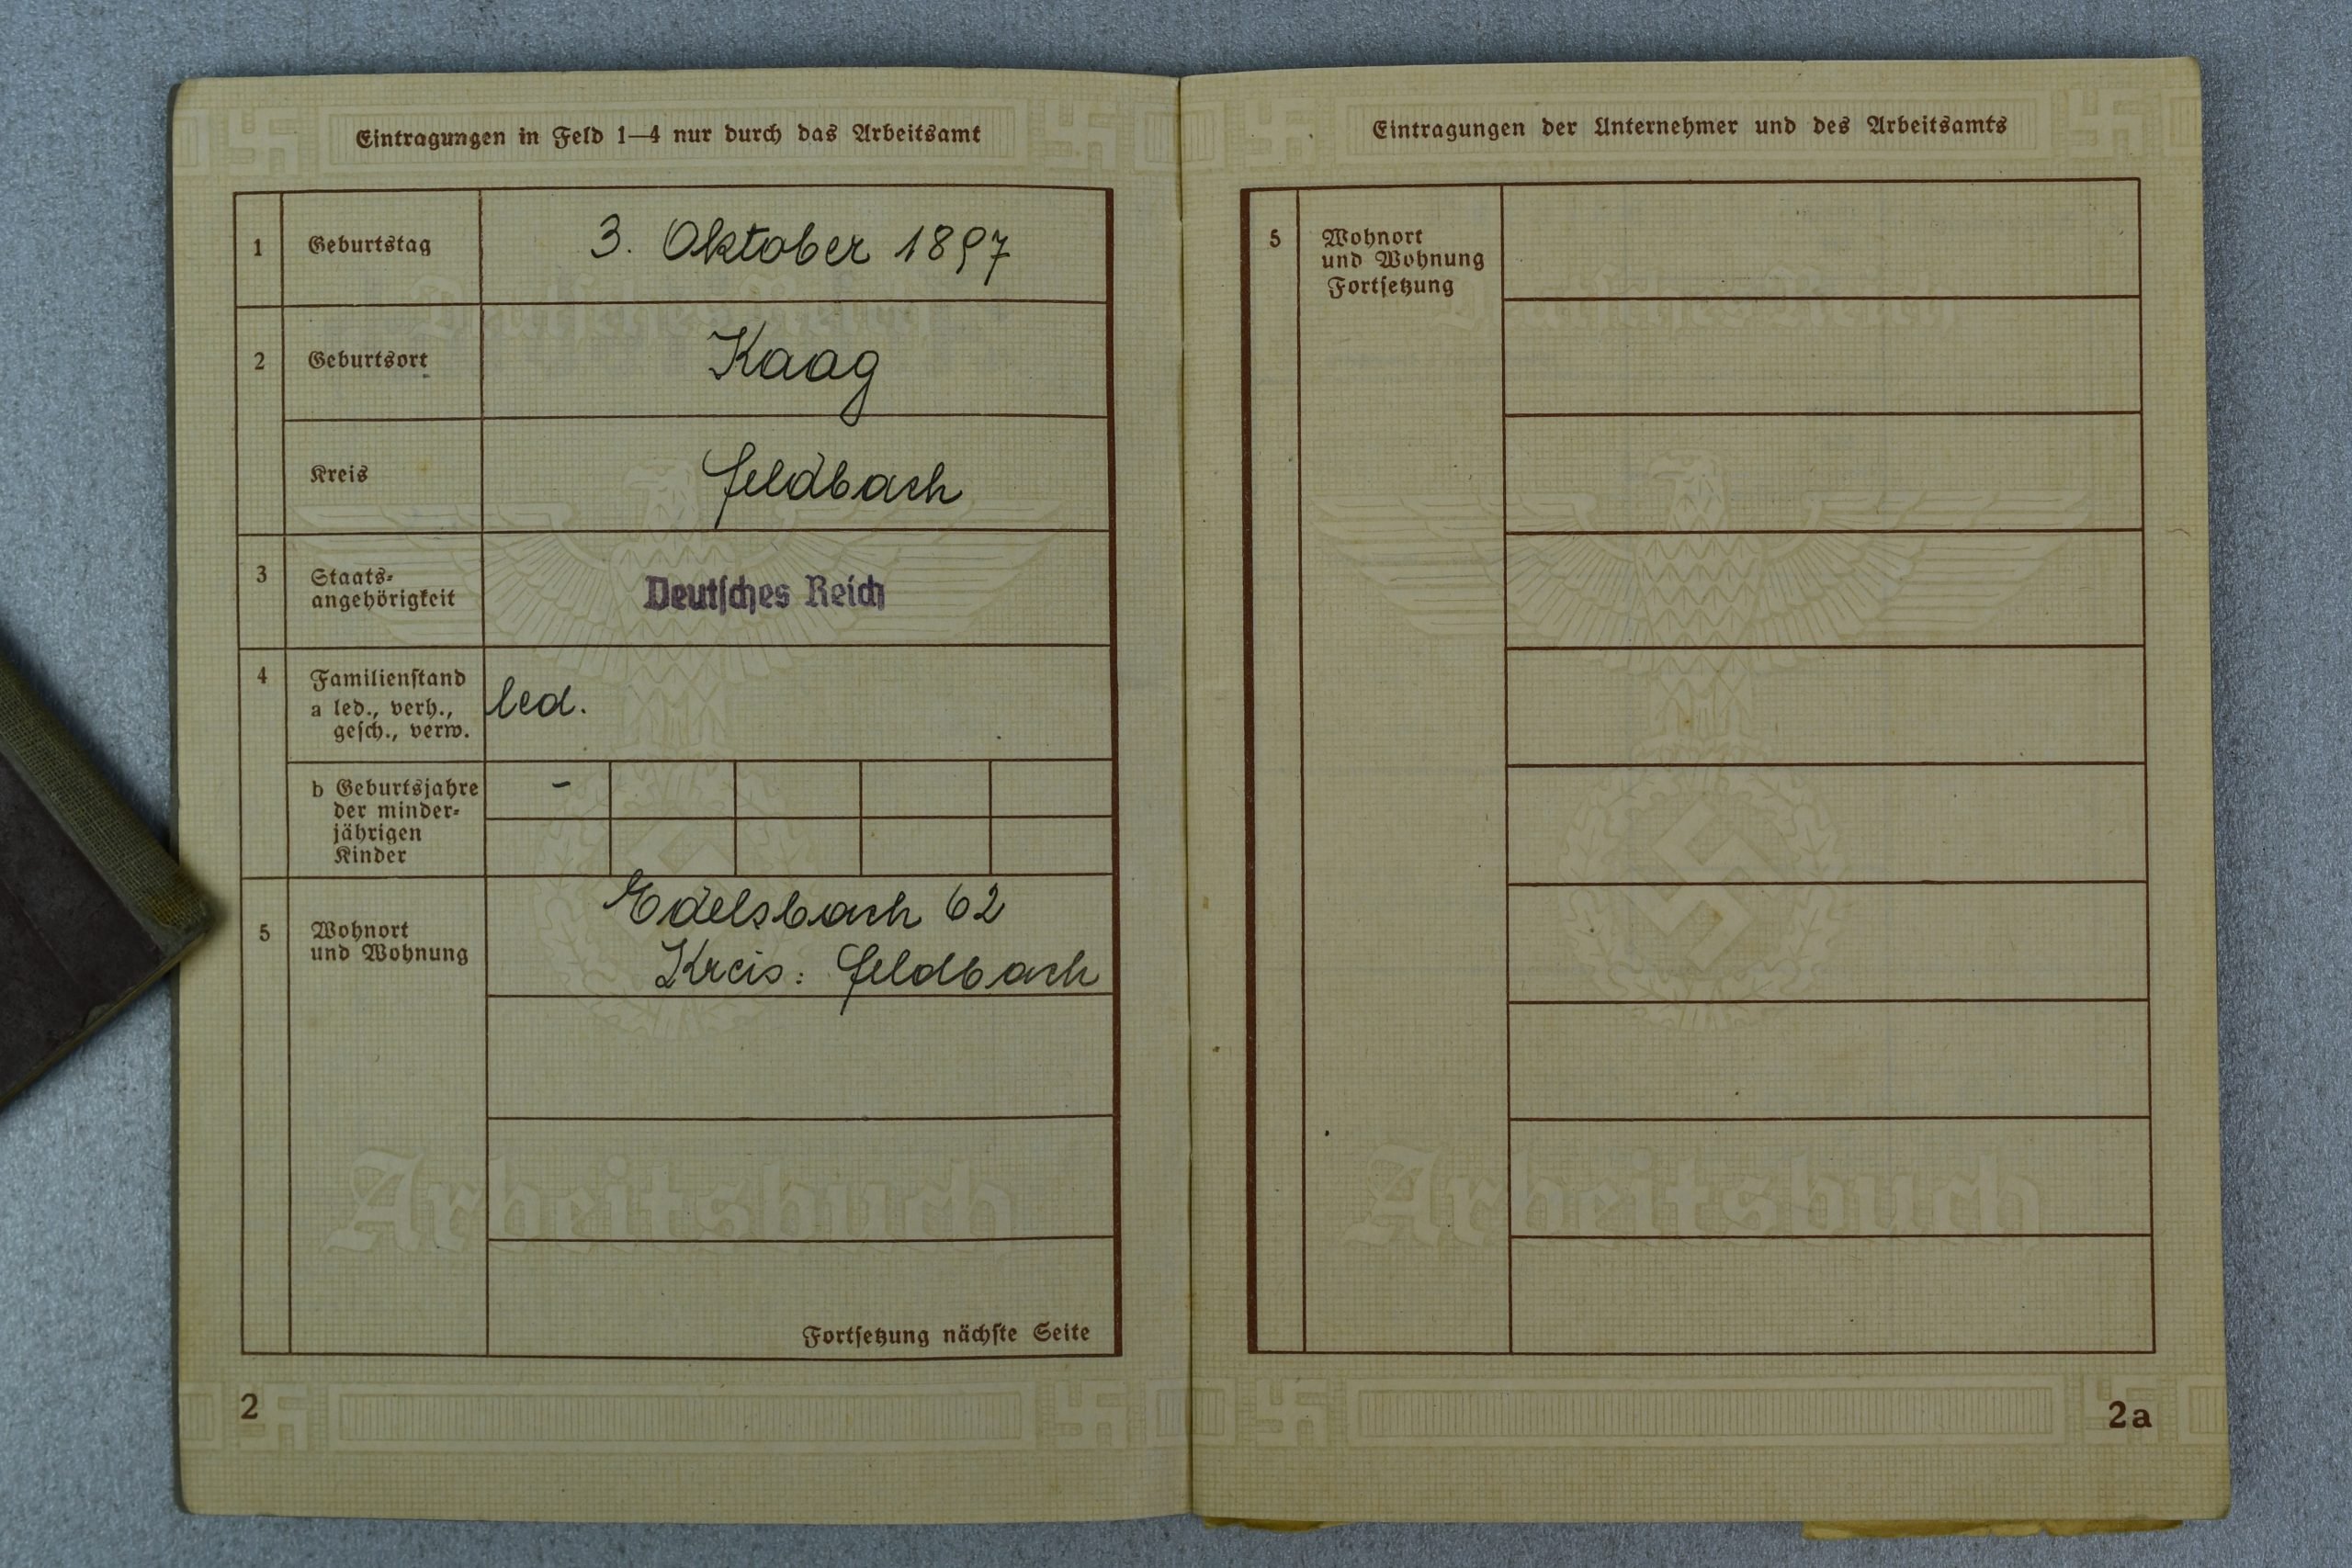 Eintragungen in Feld 1—4 nur durch das Arbeitsamt
1 Geburtstag 3. Oktober 1897
2 Geburtsort Kaag
Kreis Feldbach
3 Staats-
angehörigkeit
Deutsches Reich
4 Familienstand
a led., verh.,
gesch., verw.
led.
b Geburtsjahre
der minder-
jährigen
Kinder
-
5 Wohnort
und Wohnung
Edelsbach 62
Kreis: Feldbach
Fortsetzung nächste Seite
2
Deutsches Reich
Arbeitsbuch
Eintragungen der Unternehmer und des Arbeitsamts
5 Wohnort
und Wohnung
Fortsetzung
Deutsches Reich
Arbeitsbuch
2a